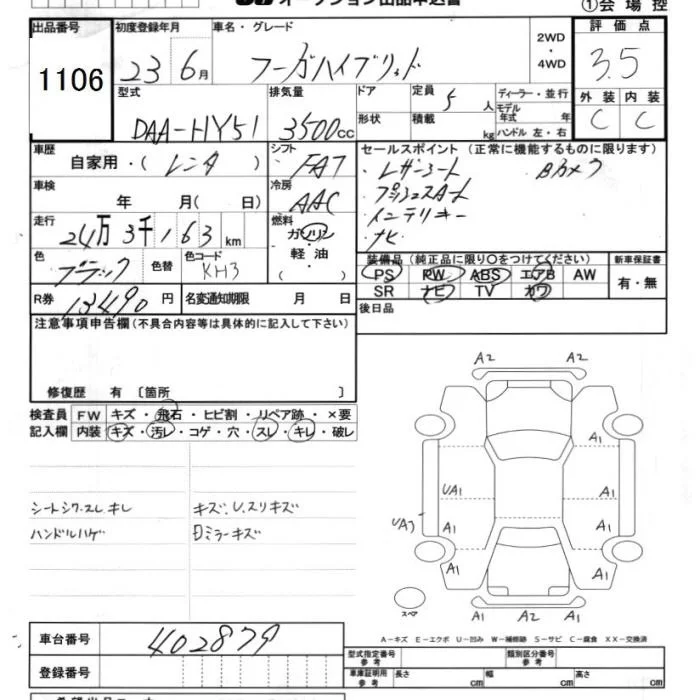 オークション出品申込書
①会場控
出品番号 初度登録年月 車名・グレード 2WD・4WD 評価点
1106 23年 6月 フーガハイブリッド 3.5
型式 排気量 ドア 定員 5人 ディーラー・並行 外装 内装
DAA-HY51 3500cc 形状 積載 kg モデル年式 年 ハンドル 左・右 C C
車歴 自家用・(レンタ) シフト FAT セールスポイント (正常に機能するものに限ります)
車検 年 月( 日) 冷房 AAC レザーシート Bカメラ
プッシュスタート
インテリキー
ナビ
走行 24万3千163km 燃料 ガソリン・軽油・( )
色 ブラック 色替 色コード KH3
装備品 (純正品に限り○をつけてください) 新車保証書
PS PW ABS エアB AW 有・無
SR ナビ TV カワ
R券 13490円 名変通知期限 月 日 後日品
注意事項申告欄(不具合内容等は具体的に記入して下さい)
修復歴 有 〔箇所 〕
検査員記入欄 FW キズ・飛石・ヒビ割・リペア跡・×要
内装 キズ・汚レ・コゲ・穴・スレ・キレ・破レ
シートシワ.スレ キレ キズ、U、スリキズ
ハンドルハゲ 日ミラーキズ
A2 A2
A1
UA1 A1
UA3 A1 A1
A1 A1
スペア A1 A2 A1
A－キズ E－エクボ U－凹み W－補修跡 S－サビ C－腐食 XX－交換済
車台番号 402879
型式指定番号 参考 類別区分番号 参考
登録番号 車庫証明用 参考 長さ cm 幅 cm 高さ cm